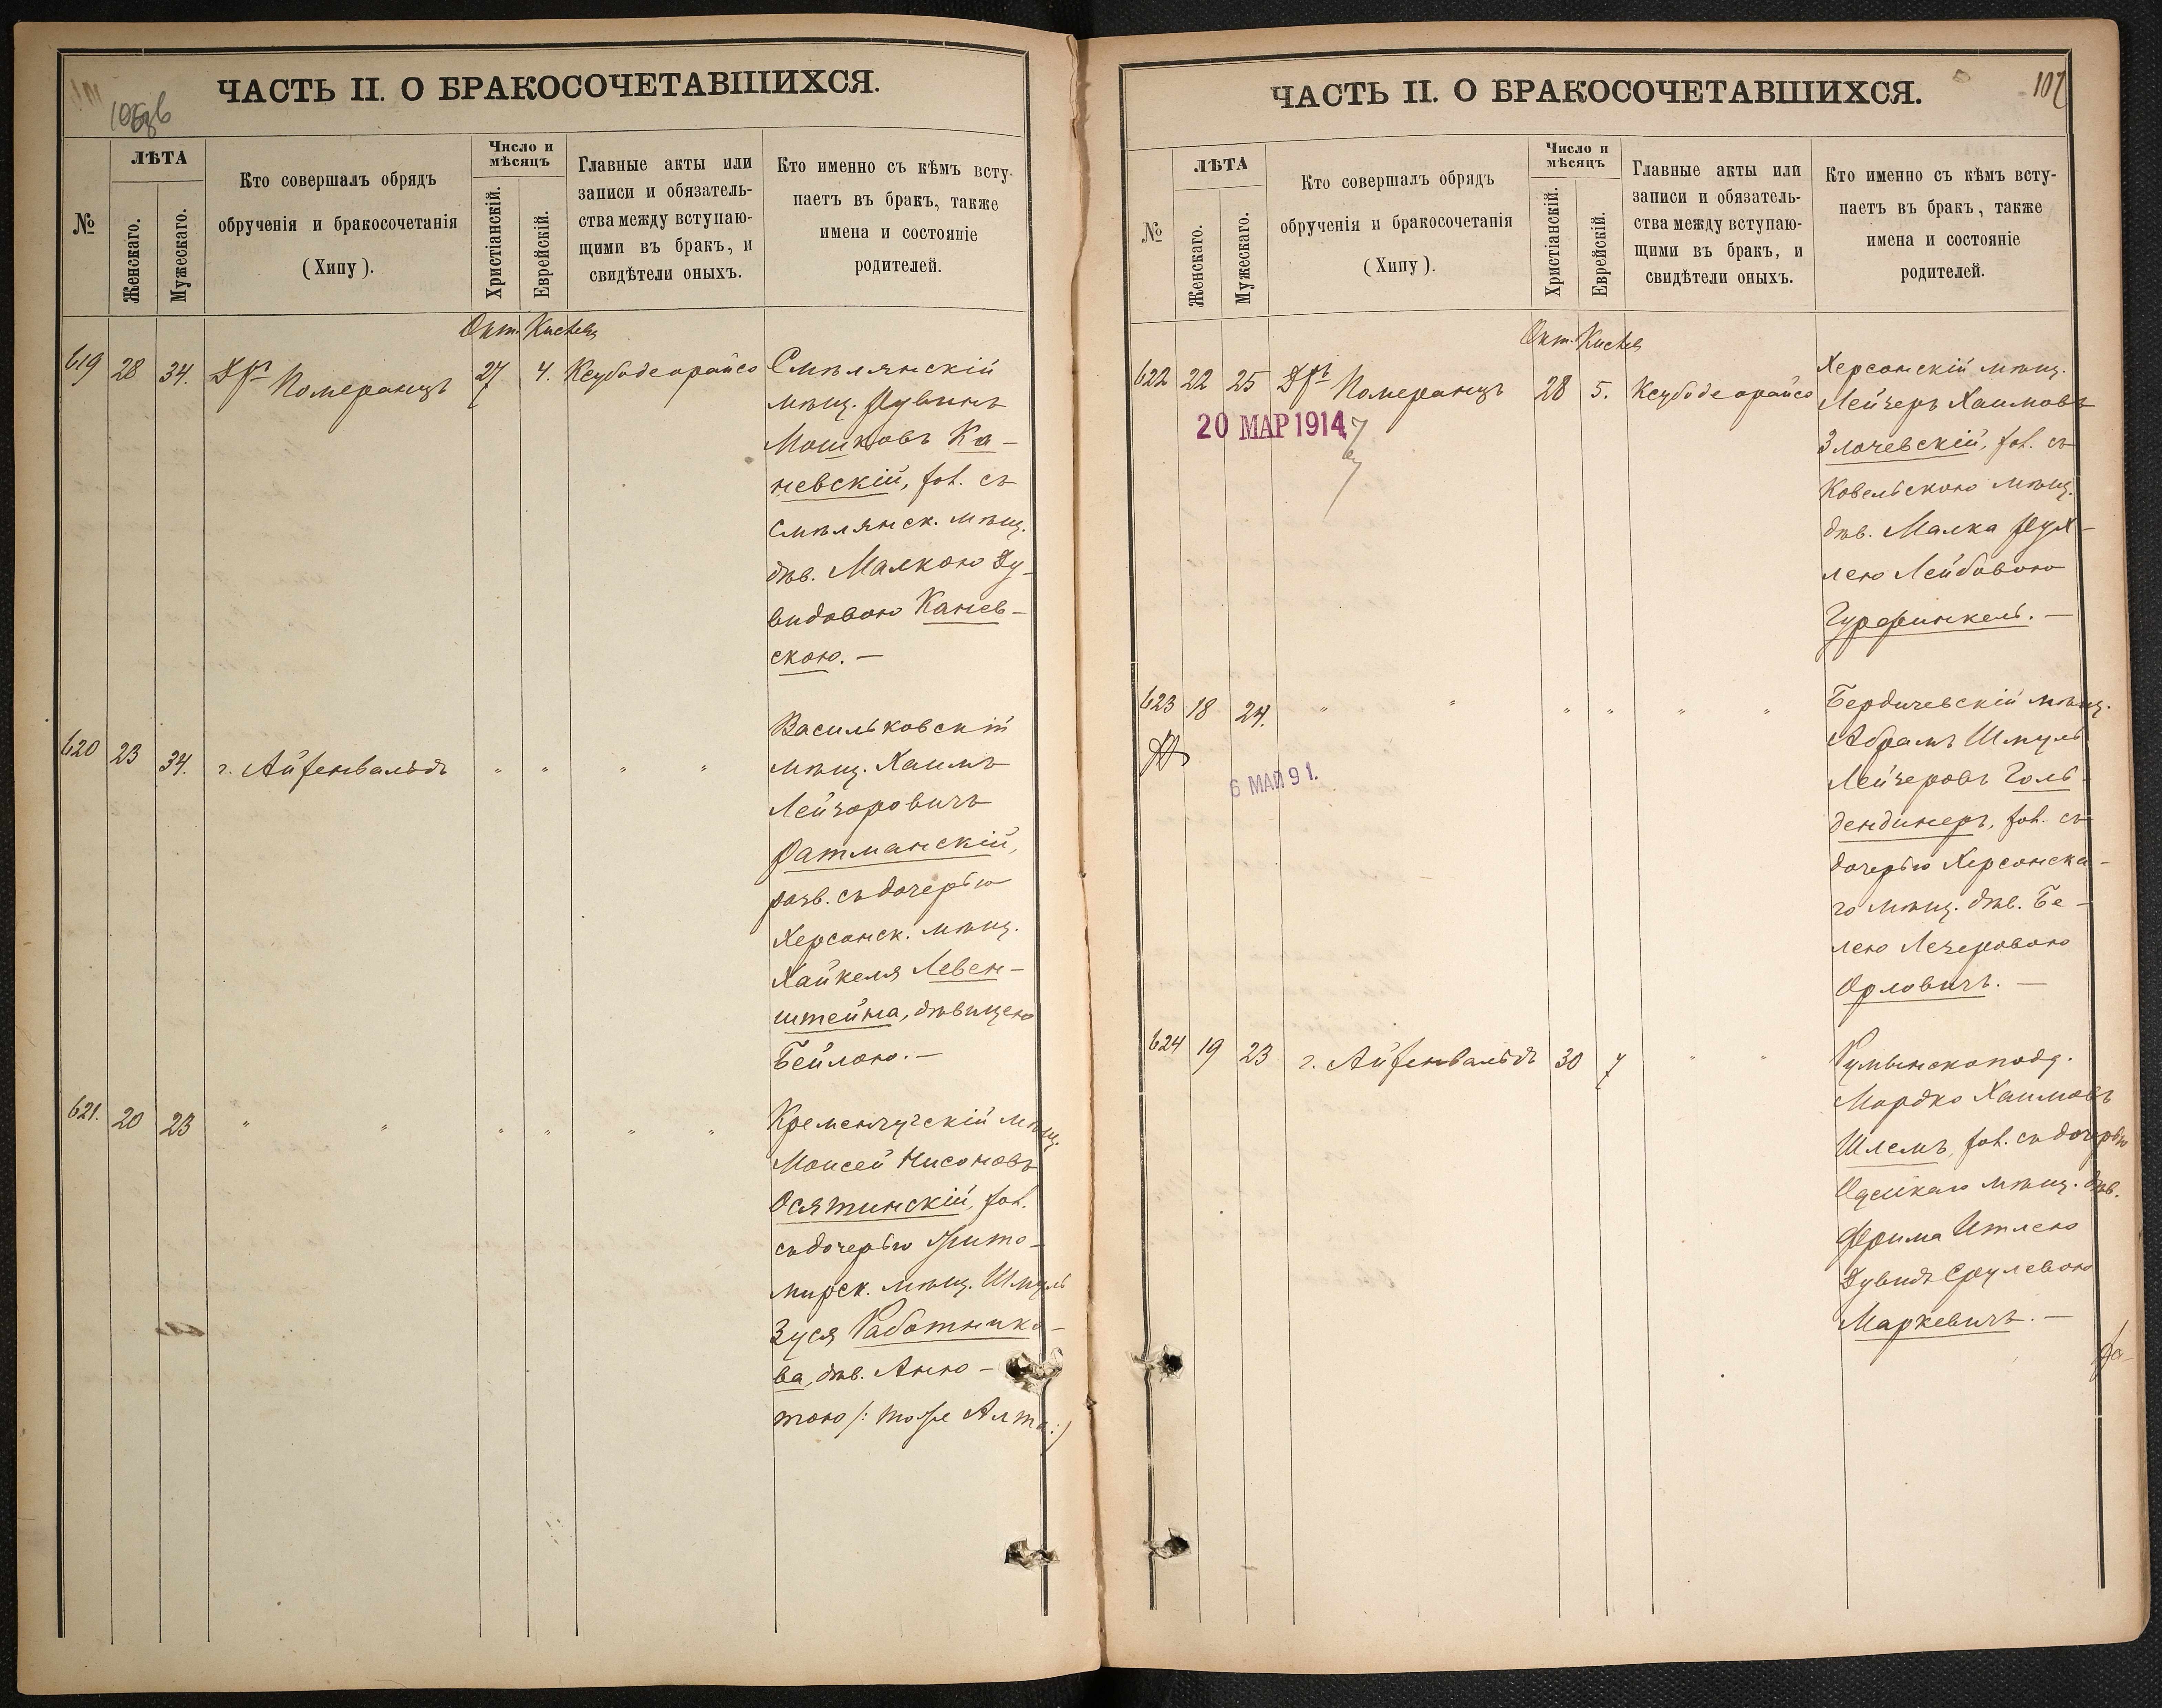 ЧАСТЬ II. О БРАКОСОЧЕТАВШИХСЯ.
№
ЛѢТА
Женскаго.
Мужескаго.
Кто совершалъ обрядъ
обрученія и бракосочетанія
(Хипу).
Число и
мѣсяцъ
Христіанскій.
Еврейскій.
Главные акты или
записи и обязатель-
ства между вступаю-
щими въ бракъ, и
свидѣтели оныхъ.
Кто именно съ кѣмъ всту-
паетъ въ бракъ, также
имена и состояніе
родителей.
Окт. Кислев
619 28 34. Дръ Померанцъ 27 4. Ксубодеорайсо
Смѣлянскій
мѣщ. Нувинъ
Мошковъ Ка-
невскій, хол. съ
Смѣлянск. мѣщ.
дѣв. Малкою Ду-
видовою Канев-
скою. —
620 23 34. г. Айзенвальдъ " " " "
Васильковскій
мѣщ. Хаимъ
Лейзоровичъ
Ратманскій,
разв. съ дочерью
Херсонск. мѣщ.
Хайкеля Левен-
штейна, дѣвицею
Бейлою. —
621. 20 23 " " " " " "
Кременчугскій мѣщ.
Моисей Нисоновъ
Осятинскій, хол.
съ дочерью Жито-
мирск. мѣщ. Шмуль
Зуся Работнико-
ва, дѣв. Анно-
тою /: тоже Алта :/
ЧАСТЬ II. О БРАКОСОЧЕТАВШИХСЯ.
107
№
ЛѢТА
Женскаго.
Мужескаго.
Кто совершалъ обрядъ
обрученія и бракосочетанія
(Хипу).
Число и
мѣсяцъ
Христіанскій.
Еврейскій.
Главные акты или
записи и обязатель-
ства между вступаю-
щими въ бракъ, и
свидѣтели оныхъ.
Кто именно съ кѣмъ всту-
паетъ въ бракъ, также
имена и состояніе
родителей.
Окт. Кислев
622 22 25 Дръ Померанцъ 28 5. Ксубодеорайсо
20 МАР 1914
Херсонскій мѣщ.
Лейзеръ Хаимовъ
Злочевскій, хол. съ
Ковельскою мѣщ.
дѣв. Малка Рух-
лею Лейбовою
Гурфинкель. —
623 18 24. " " " " " "
6 МАЙ 91.
Бердичевскій мѣщ.
Абрамъ Шмуль
Лейзеровъ Голь-
дендинеръ, хол. съ
дочерью Херсонска-
го мѣщ. дѣв. Бе-
лею Лезеровою
Орловичъ. —
624 19 23 г. Айзенвальдъ 30 7 " "
Румынскопод.
Мордко Хаимовъ
Шлемъ, хол. съ дочерью
Одесскаго мѣщ. дѣв.
Фрима Итлею
Дувидъ Срулевою
Маркевичъ. —